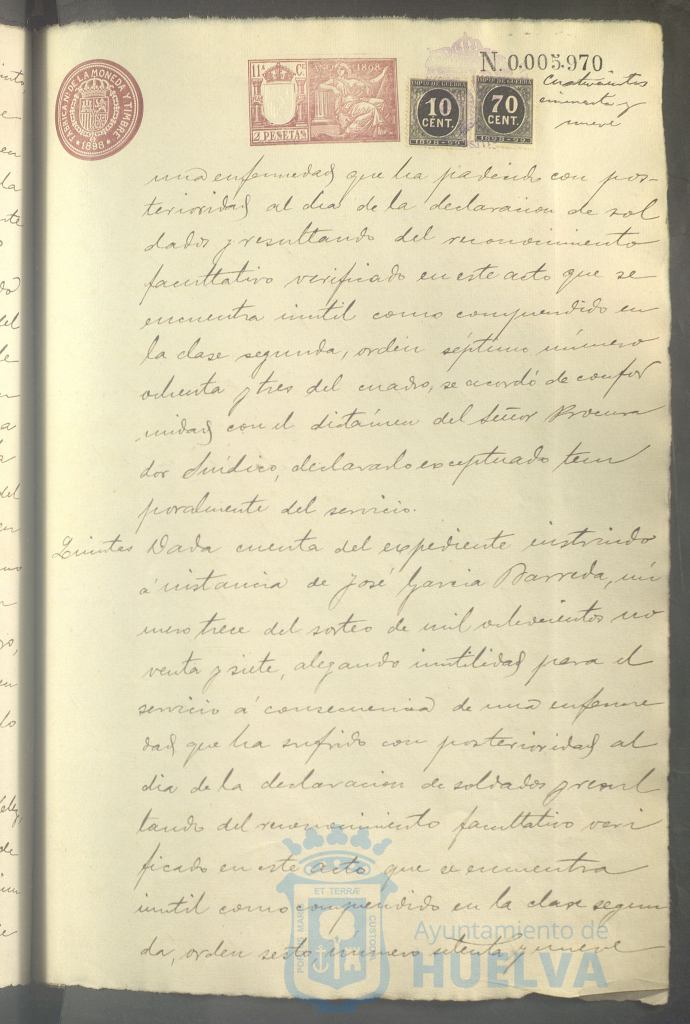 FABRICA NL DE LA MONEDA Y TIMBRE
* 1898 *
11ª Cª
AÑO 1898
2 PESETAS
10
CENT.
1898-99
IMPTO DE GUERRA
70
CENT.
1898-99
N. 0.005.970
Cuatrocientos
cincuenta y
nueve
una enfermedad que ha padecido con pos-
terioridad al dia de la declaracion de sol
dados y resultando del reconocimiento
facultativo verificado en este acto que se
encuentra inutil como comprendido en
la clase segunda, orden séptimo número
ochenta y tres del cuadro, se acordó de confor
midad con el dictámen del Señor Procura
dor Sindico, declararlo exceptuado tem
poralmente del servicio.
Quintas Dada cuenta del expediente instruido
á instancia de José Garcia Barreda, nú
mero trece del sorteo de mil ochocientos no
venta y siete, alegando inutilidad para el
servicio á consecuencia de una enferme
dad que ha sufrido con posterioridad al
dia de la declaracion de soldados y resul
tando del reconocimiento facultativo veri
ficado en este acto que se encuentra
inutil como comprendido en la clase segun
da, orden sesto número setenta y nueve
PORTUS MARIS ET TERRÆ CUSTODIA
Ayuntamiento de
HUELVA